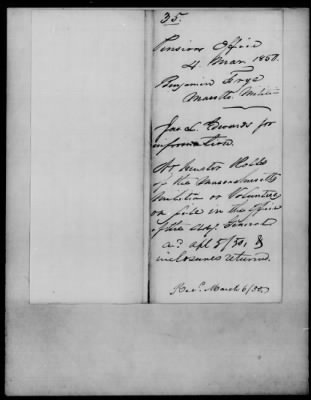 35.
Pensions Office
4 Mar. 1850.
Benjamin Frye
Massts. Militia
Jas L. Edwards for
information.
of the Massachusetts
Militia or Volunteers
on file in the Office
of the Adjt. General
a.d apl 5/50, &
inclosures returned.
Rec'd March 6/50.